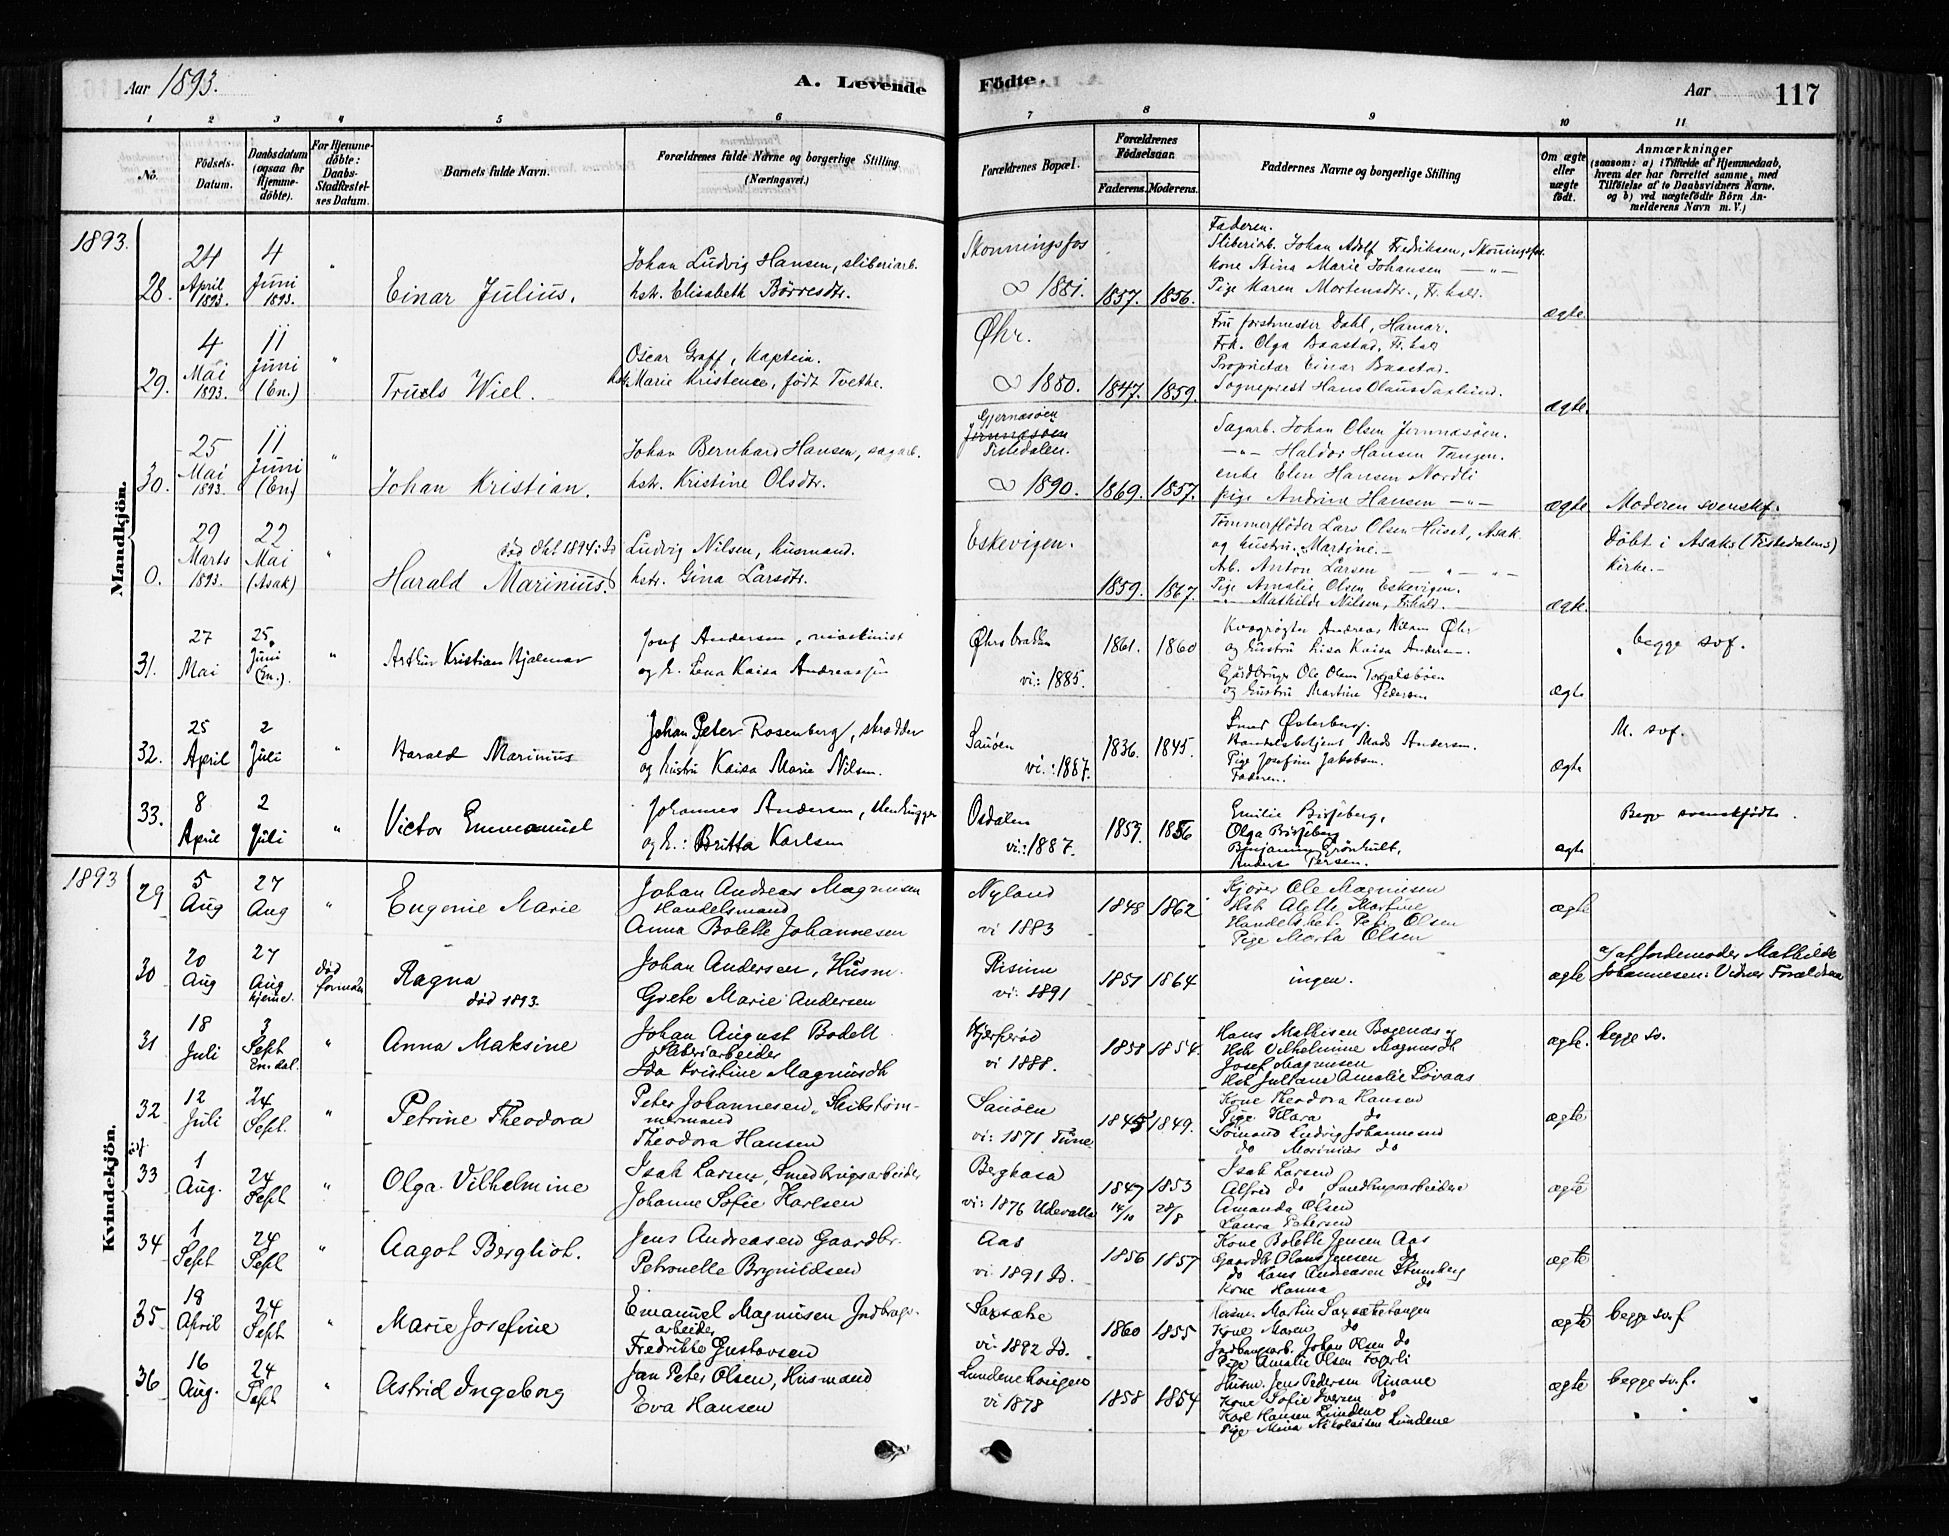 Aar 1893.
A. Levende
Födte.
Aar
117
1 2 3 4 5 6 7 8 9 10 11
No.
Födsels-Datum.
Daabsdatum (ogsaa for Hjemmedöbte).
For Hjemmedöbte: Daabs-Stadfæstelses Datum.
Barnets fulde Navn.
Forældrenes fulde Navne og borgerlige Stilling (Næringsvei.)
Forældrenes Bopæl.
Forældrenes Födselsaar.
Faderens. Moderens.
Faddernes Navne og borgerlige Stilling
Om ægte eller uægte födt.
Anmærkninger
(saasom: a) i Tilfælde af Hjemmedaab, hvem der har forrettet samme, med Tilföielse af to Daabsvidners Navne. og b) ved uægtefödte Börn Anmelderens Navn m. V.)
Mandkjön.
1893.
28. 24 April 1893. 4 Juni 1893. " Einar Julius.
Johan Ludvig Hansen, sliberiarb.
hstr. Elisabeth Börresdtr.
Skonningsfos
∞ 1881. 1857. 1856.
Faderen.
Sliberiarb. Johan Adolf Fredriksen, Skonningsfos.
Kone Stina Marie Johansen — " —
Pige Karen Mortensdtr., Fr.hald.
ægte.
29. 4 Mai 1893. 11 Juni (En.) " Truels Wiel.
Oscar Graff, Kaptein.
hstr. Marie Kristence, født Tvethe.
Øhr.
∞ 1880. 1847. 1859.
Fru forstmester Dahl, Hamar.
Frk. Olga Baastad, Fr.hald
Proprietær Einar Baastad.
Sognepræst Hans Olaus Saxlund.
ægte.
30. 25 Mai 1893. 11 Juni (En) " Johan Kristian.
Johan Bernhard Hansen, sagarb.
hstr. Kristine Olsdtr.
Gjernæsöen
Tistedalen.
∞ 1890. 1869. 1857.
Sagarb. Johan Olsen Jernnæsöen.
— " — Haldor Hansen Tangen.
enke Elen Hansen Nordli
pige Andrine Hansen — " —
ægte. Moderen svenskf.
0. 29 Marts 1893. 22 Mai (Asak) " Harald Marinius.
død Okt 1894
Ludvig Nilsen, husmand.
hstr. Gina Larsdtr.
Eskevigen.
1859. 1867.
Tømmerfløder Lars Olsen Huset, Asak
og hustru Martine.—
Arb. Anton Larsen — " —
Pige Amalie Olsen Eskevigen.
— " — Mathilde Nilsen, Fr.hald.
ægte. Döbt i Asaks (Tistedalens)
Kirke.—
31. 27 Mai 25. Juni (En.). " Arthur Kristian Hjalmar
Josef Andersen, maskinist
og h. Lena Kaisa Andreassen
Øhrsbakken
vi: 1885. 1861. 1860
Kvægrøgter Andreas Nilsen Øhr
og hustru Lisa Kaisa Andersen.
Gårdbruger Ole Olsen
og hustru Martine Pedersen
ægte begge svf.
32. 25 April 2 Juli " Harald Marinius
Johan Peter Rosenberg, skrædder
og hustru Kaisa Marie Nilsen.
Sauöen
vi.: 1887. 1836. 1845.
Smed Österberg.
Handelsbetjent Mads Andersen.
Pige Josefine Jakobsen.
Faderen.
ægte M. svf.
33. 8 April 2 Juli " Victor Emmanuel
Johannes Andersen, stenhugger
og h.: Britta Karlsen
Osdalen
vi.: 1887. 1859. 1856
Emilie Birjeberg,
Olga Birjeberg
Benjamin Grönhult,
Anders Persen.
ægte Begge svenskfödte.
Kvindekjön.
1893
29 5 Aug 27 Aug " Eugenie Marie
Johan Andreas Magnusen
Handelsmand
Anna Bolette Johannesen
Nyland
vi 1883 1848 1862
Kjører Ole Magnusen
Hstr Alette Martine
Handelsbet. Peter Olsen
Pige Marta Olsen
ægte
30 20 Aug 27 Aug hjemme. død Ragna
død 1893.
Johan Andersen, Husm.
Grete Marie Andersen
Risinne
vi: 1891 1857 1864
ingen.
ægte a/ af Jordemoder Mathilde
Johannesen: Vidner Forældrene
31 18 Juli 3 Sept En.dal. " Anna Maksine
Johan August Bodell
Sliberiarbeider
Ida Kristine Magnusdtr
Hjerferød
vi 1888. 1858 1854.
Hans Mathisen Bogenæs og
Hstr Vilhelmine Magnusdtr
Josef Magnusen
Hstr Juliane Amalie Løvaas
ægte. begge sv.
32 12 Juli 24 Sept. " Petrine Theodora
Peter Johannesen, Skibstöm-
mermand
Theodora Hansen
Sauöen
vi: 1871 Tune 1845 1849.
Kone Theodora Hansen
Pige Klara do
Sömand Ludvig Johannesen
do Marinius do
ægte
33 1 Aug. 24 Sept " Olga Vilhelmine
Isak Larsen, Smedbrugsarbeider
Johanne Sofie Karlsen
Berghasa
vi: 1876 Udevalla 1847 14/10 1853 28/8
Isak Larsen
Alfred do, Smedbrugsarbeidere
Amanda Olsen
Laura Petersen
ægte
34 1 Sept 24 Sept " Aagot Bergliot.
Jens Andreasen Gaardbr.
Petronelle Brynildsen
Aas
vi 1891 Id. 1856 1857
Kone Bolette Jensen Aas
Gaardbr Olaus Jensen do
do Hans Andreasen Stumberg
Kone Hanna do
ægte
35 18 April 24 Sept " Marie Josefine
Emanuel Magnusen Jndbrugs-
arbeider
Fredrikke Gustavsen
Saxsæke
vi: 1892 Id. 1860 1855
Husm. Martin Saxsæketangen
Kone Maren do
Johan Olsen do
Pige Amalie Olsen Fagerli
ægte begge sv.f
36 16 Aug. 24 Sept " Astrid Ingeborg
Jan Peter Olsen, Husmand
Eva Hansen
Lundenehaugen
vi 1878 1858 1854
Husm. Jens Pedersen Risane
Kone Sofie Iversen do
Karl Hansen Lundene
Pige Mina Nikolaisen Lundene
ægte begge sv.f.